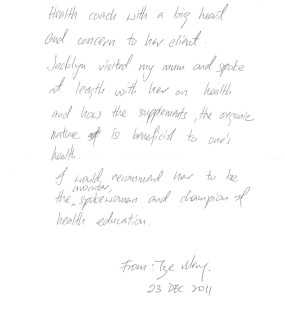 Health coach with a big heart
and concern to her client.
Jacklyn visited my mum and spoke
at length with her on health
and how the supplements, the organic
nature of is beneficial to one's
health.
I would recommend her to be
the advocator, spokewoman and champion of
health education.
From:- Tze
23 DEC 2011